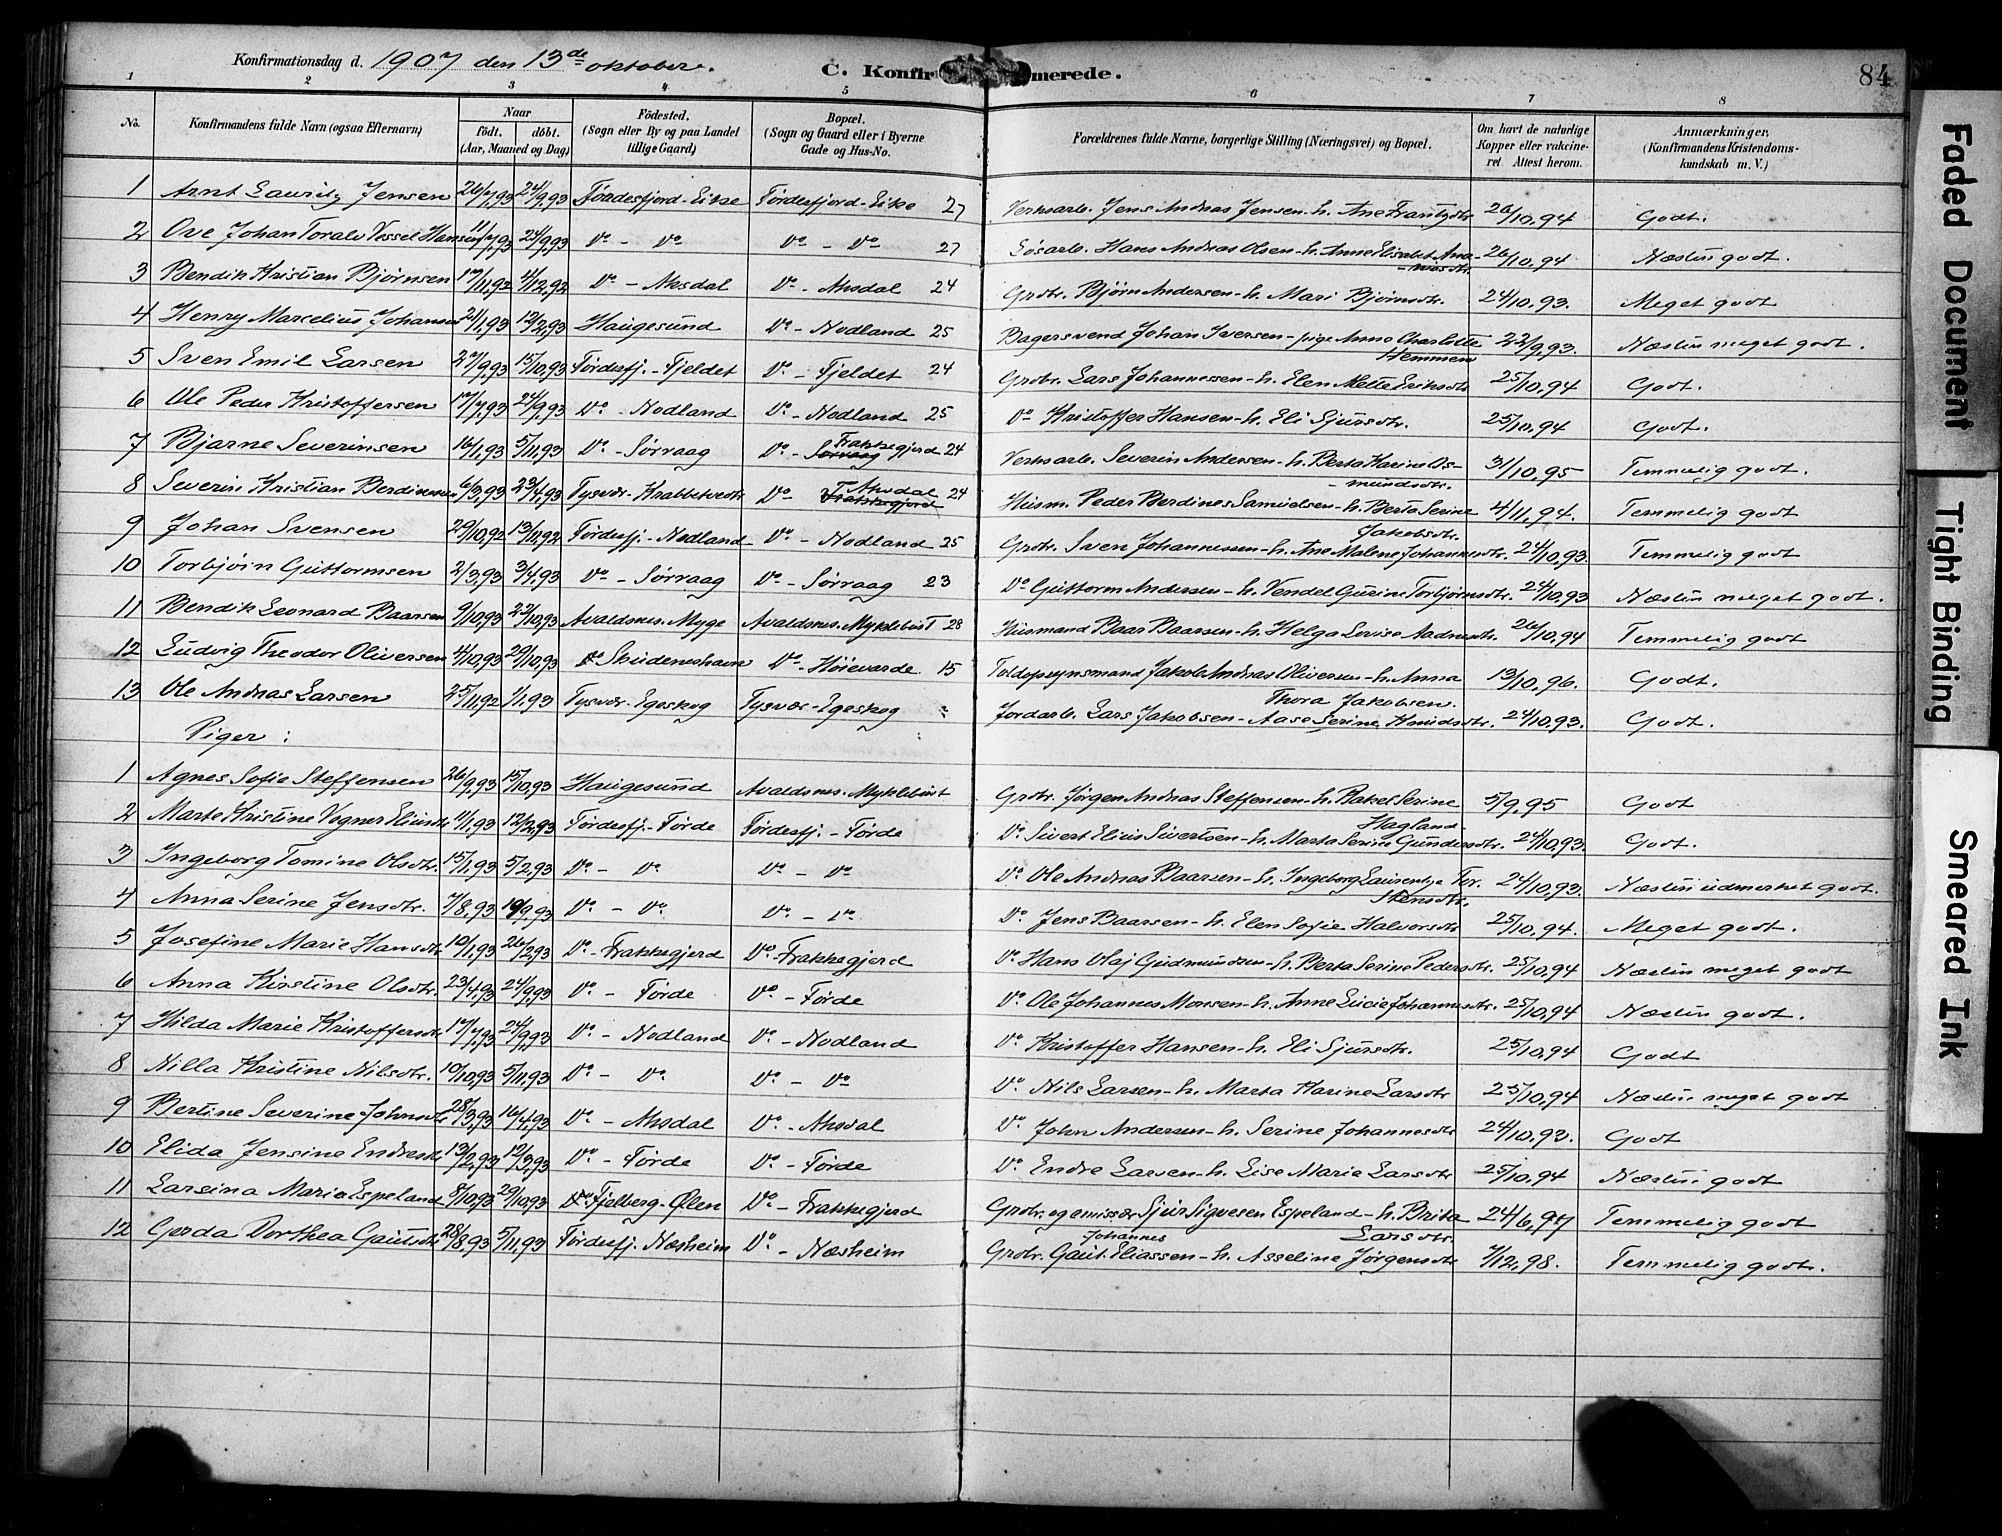 Konfirmationsdag d. 1907 den 13de oktober.
C. Konfirmerede.
84
1 2 3 4 5 6 7 8
No.
Konfirmandens fulde Navn (ogsaa Efternavn)
Naar
født. døbt.
(Aar, Maaned og Dag)
Fødested.
(Sogn eller By og paa Landet
tillige Gaard)
Bopæl.
(Sogn og Gaard eller i Byerne
Gade og Hus-No.
Forældrenes fulde Navne, borgerlige Stilling (Næringsvei) og Bopæl.
Om havt de naturlige
Kopper eller vakcine-
ret Attest herom.
Anmærkninger.
(Konfirmandens Kristendoms-
kundskab m. V.)
1 Arnt Lauritz Jensen 26/7,93 24/9,93 Førdesfjord-Eike Førdesfjord-Eike 27 Verksarb. Jens Andreas Jensen-h. Ane Frantzdtr 26/10,94 Godt.
2 Ove Johan Toralv Vessel Hansen 11/7,93 24/9,93 Do - Do Do - Do 27 Løsarb. Hans Andreas Olsen-h. Anne Elisabet Ana-niasdtr. 26/10,94 Næsten godt.
3 Bendik Kristian Bjørnsen 17/11,92 4/12,92 Do - Aksdal Do - Aksdal 24 Grdbr. Bjørn Andersen-h. Mari Bjørnsdtr. 24/10,93. Meget godt
4 Henry Marcelius Johansen 21/1,93 12/2,93 Haugesund Do - Nodland 25 Bagersvend Johan Iversen-pige Anna Charlotte Hemmen 22/9,93. Næsten meget godt.
5 Sven Emil Larsen 27/9,93 15/10,93 Førdesfj.-Fjeldet Do - Fjeldet 24 Grdbr. Lars Johannessen-h. Elen Mette Eriksdtr 25/10,94 Godt.
6 Ole Peder Kristoffersen 17/7,93 24/9,93 Do - Nodland Do - Nodland 25 Do Kristoffer Hansen-h. Eli Sjursdtr. 25/10,94 Godt.
7 Bjarne Severinsen 16/1,93 5/11,93 Do - Sørraag Do - Sørraag Frakkegjerd 24 Verksarb. Severin Andersen-h. Berta Karine Os-mundsdtr. 31/10,95 Temmelig godt.
8 Severin Kristian Berdinessen 6/3,93 23/4,93 Tysvær-Krabbetveit Do Frakkegjerd Aksdal 24 Husm. Peder Berdines Samuelsen-h. Berta Serine Jakobsdtr. 4/11,94. Temmelig godt
9 Johan Svensen 29/10,92 13/11,92 Førdesfj.-Nodland Do - Nodland 25 Grdbr. Sven Johannessen-h. Ane Malene Johannesdtr. 24/10,93. Temmelig godt
10 Torbjørn Guttormsen 2/3,93 3/4,93 Do - Sørraag Do - Sørraag 23 Do Guttorm Andersen-h. Vendel Gurine Torbjørnsdtr. 24/10,93 Næsten meget godt.
11 Bendik Leonard Baarsen 9/10,93 22/10,93 Avaldsnes-Myge Avaldsnes-Myklebust 28 Husmand Baar Baarsen-h. Helga Lovise Aadnesdtr. 26/10,94 Temmelig godt
12 Ludvig Theodor Oliversen 4/10,93 29/10,93 Do Skudeneshavn Do - Høievarde 15 Toldopsynsmand Jakob Andreas Oliversen-h. Anna Thora Jakobsen. 13/10,96. Godt.
13 Ole Andreas Larsen 25/11,92 1/1,93 Tysvær-Egeskog Tysvær-Egeskog Jordarb. Lars Jakobsen-Aase Serine Knudsdtr. 24/10,93. Godt.
Piger:
1 Agnes Sofie Steffensen 26/9,93 15/10,93 Haugesund Avaldsnes-Myklebust Grdbr. Jørgen Andreas Steffensen-h. Rakel Serine Hagland 5/9,95 Godt
2 Marte Kristine Vogner 11/1,93 12/2,93 Førdesfj.-Førde Førdesfj.-Førde Do Sivert Elius Sivertsen-h. Marta Serine Gundersdtr. 24/10,93. Godt.
3 Ingeborg Tomine Olsdtr. 15/1,93 5/2,93 Do - Do Do - Do Do Ole Andreas Baarsen-h. Ingeborg Laurentze Tor-stensdtr. 24/10,93. Næsten udmerket godt.
4 Anna Serine Jensdtr. 7/8,93 10/9,93 Do - Do Do - Do Do Jens Baarsen-h. Elen Sofie Halvorsdtr 25/10,94. Meget godt.
5 Josefine Marie Hansdtr 10/1,93 26/2,93 Do - Frakkegjerd Do - Frakkegjerd Do Hans Olaj Gudmundsen-h. Berta Serine Pedersdtr. 25/10,94 Næsten meget godt
6 Anna Kirstine Olsdtr. 23/4,93 24/9,93 Do - Førde Do - Førde Do Ole Johannes Monsen-h. Anne Lucie Johannesdtr. 25/10,94 Næsten godt.
7 Hilda Marie Kristoffersdtr 17/7,93 24/9,93 Do - Nodland Do - Nodland Do Kristoffer Hansen-h. Eli Sjursdtr. 25/10,94 Godt
8 Nilla Kristine Nilsdtr. 10/10,93 5/11,93 Do - Do Do - Do Do Nils Larsen-h. Marta Karine Larsdtr 25/10,94 Næsten meget godt
9 Bertine Severine Johnsdtr 28/3,93 16/4,93 Do - Aksdal Do - Aksdal Do John Andersen-h. Serine Johannesdtr 24/10,93. Godt
10 Elida Jensine Endresdtr 13/2,93 12/3,93 Do - Førde Do - Førde Do Endre Larsen-h. Lise Marie Larsdtr 25/10,94 Næsten godt
11 Larsina Marie Espeland 8/10,93 29/10,93 Do Fjelberg-Ølen Do - Frakkegjerd Grdbr. og emissær Sjur Sigvesen Espeland-h. Brita Larsdtr. 24/6,97 Temmelig godt
12 Gerda Dorthea Gautsdtr 28/8,93 5/11,93 Førdesfj. Næsheim Do - Næsheim Grdbr. Gaut Johannes Eliassen-h. Asseline Jørgensdtr 7/12,98. Temmelig godt.
Faded Document
Tight Binding
Smeared Ink